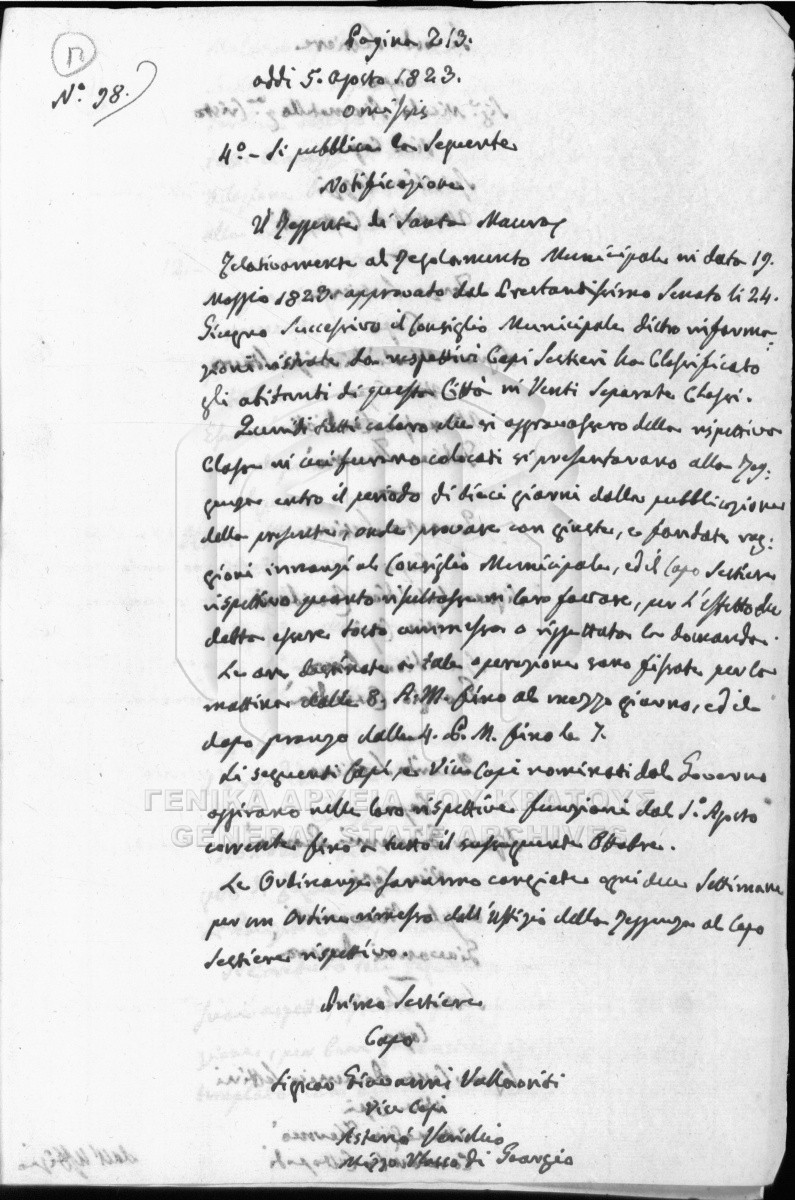 12
Nº 98.
Pagina 213.
addi 5. Agosto 1823.
Omissis
4º - Si pubblica la seguente
Notificazione
Il Reggente di Santa Maura
Relativamente al Regolamento Municipale in data 19.
Maggio 1823. approvato dal Prestantissimo Senato li 24.
Giugno successivo il Consiglio Municipale dietro informa-
zioni ritirate da rispettivi Capi Sestieri ha classificato
gli abitanti di questa Città in Venti Separate Classi.
Quindi tutti coloro che si aggravassero della rispettiva
Classe in cui furono colocati si presentarano alla Reg-
genza entro il periodo di dieci giorni dalla pubblicazione
della presente, onde provare con giuste, e fondate rag-
gioni innanzi al Consiglio Municipale, ed il Capo Sestiere
rispettivo quanto risultasse in loro favore, per l'effetto che
debba essere tosto ammessa o riggettata la domanda.
Le ore destinate a tale operazione sono fissate per la
mattina dalle 8. A.M. fino al mezzo giorno, ed il
dopo pranzo dalle 4. P.M. fino le 7.
Li seguenti Capi, e Vice Capi nominati dal Governo
aggirano nelle loro rispettive funzioni dal 1º Agosto
corrente fino a tutto il susseguente Ottobre.
Le Ordinanze saranno cangiate ogni due Settimane
per un Ordine rimesso dall'Uffizio della Reggenza al Capo
Sestiere rispettivo.
Primo Sestiere
Capo
Sigior Giovanni Vallaoriti
Vice Capi
Asterió
di Giorgio
dall'Uffizio
ΓΕΝΙΚΑ ΑΡΧΕΙΑ ΤΟΥ ΚΡΑΤΟΥΣ
GENERAL STATE ARCHIVES